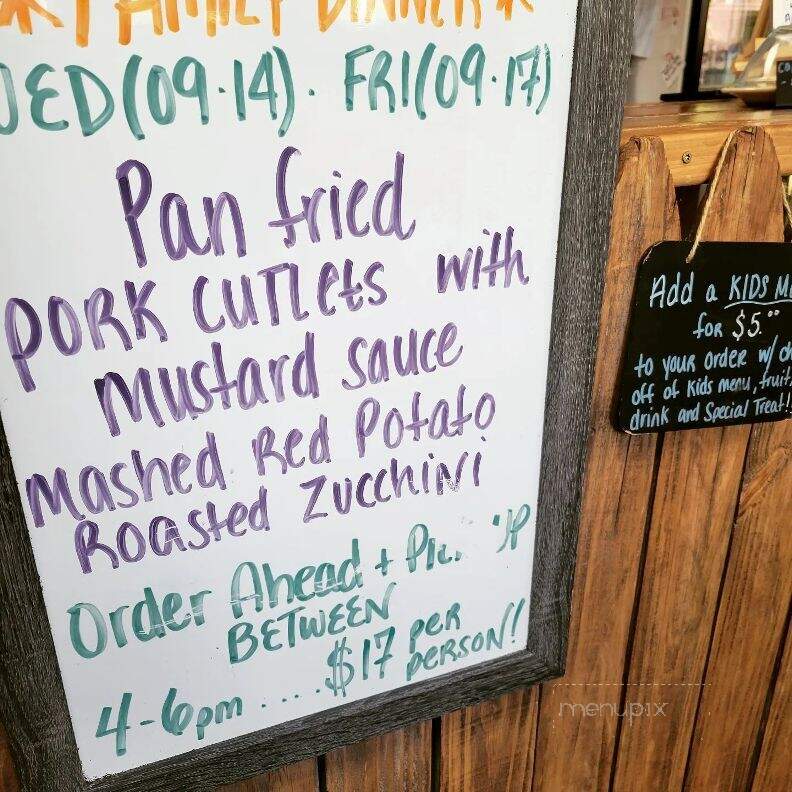 *FAMILY DINNER*
WED(09.14). FRI(09.17)
Pan fried
PORK CUTLEtS with
Mustard sauce
Mashed Red Potato
Roasted Zucchini
Order Ahead + Pick UP
BETWEEN
4-6pm ....$17 PER
PERSON!
Add a KIDS M
for $5.00
to your order w/ ch
off of Kids menu, fruit,
drink and Special Treat!
menupix